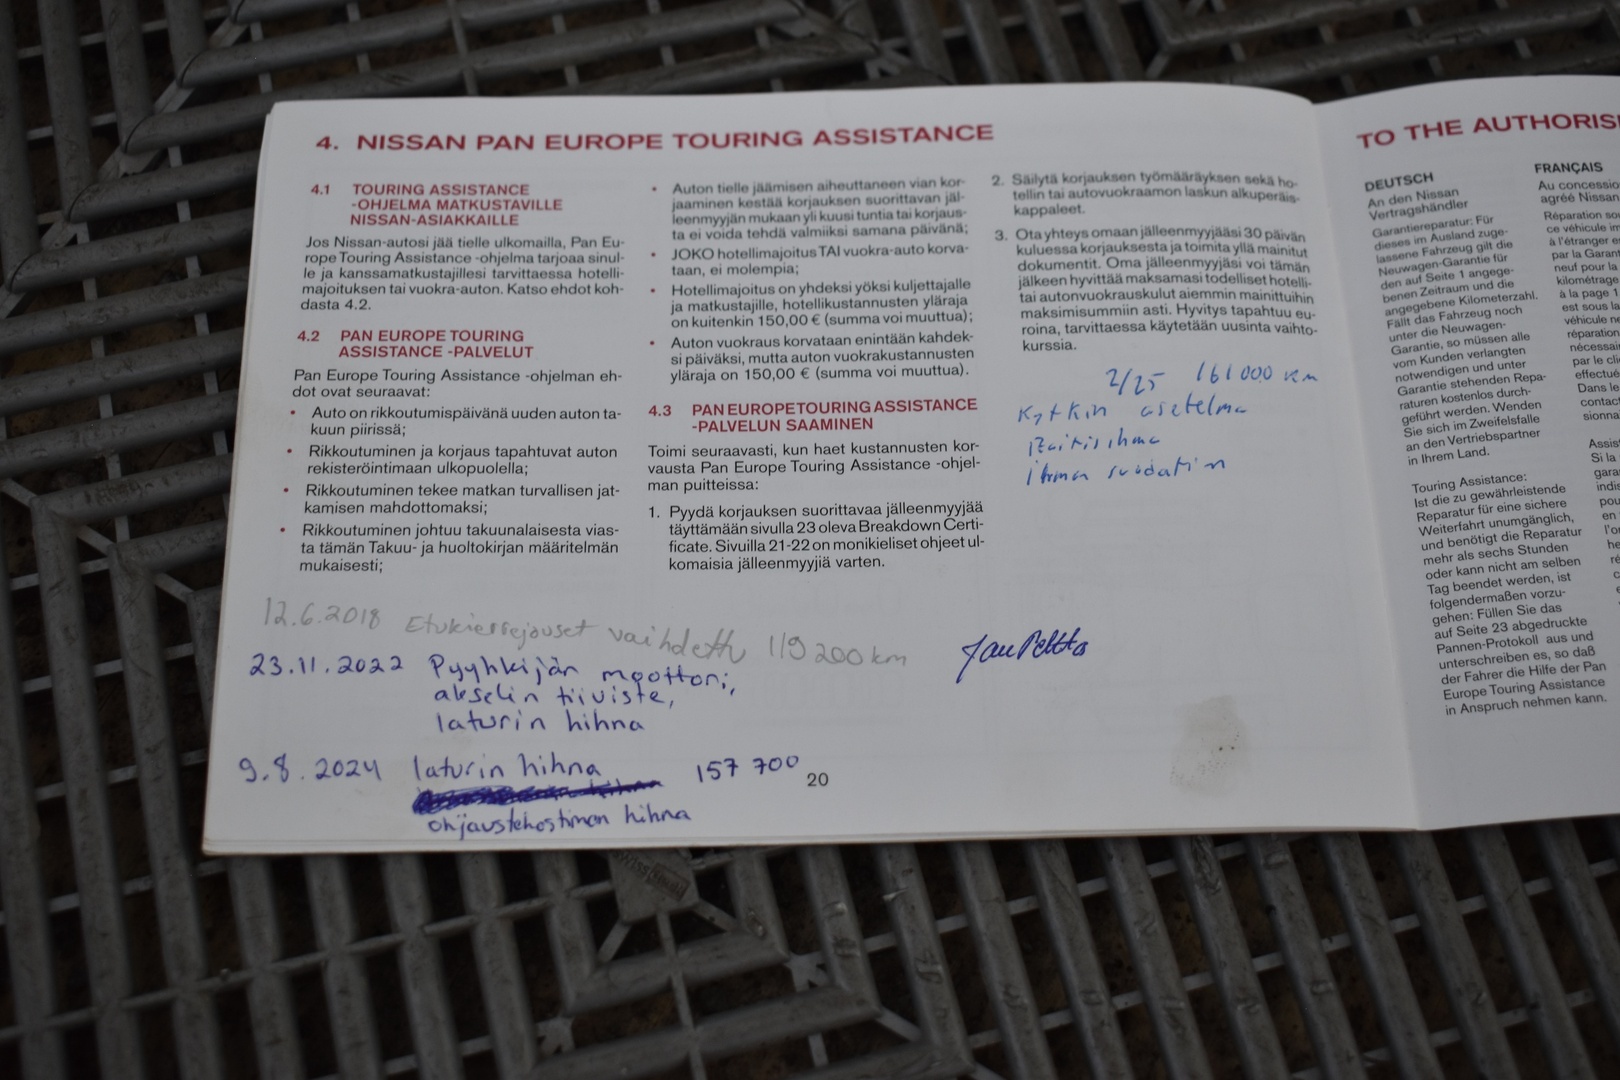 4. NISSAN PAN EUROPE TOURING ASSISTANCE
4.1 TOURING ASSISTANCE
-OHJELMA MATKUSTAVILLE
NISSAN-ASIAKKAILLE
Jos Nissan-autosi jää tielle ulkomailla, Pan Eu-
rope Touring Assistance -ohjelma tarjoaa sinul-
le ja kanssamatkustajillesi tarvittaessa hotelli-
majoituksen tai vuokra-auton. Katso ehdot koh-
dasta 4.2.
4.2 PAN EUROPE TOURING
ASSISTANCE -PALVELUT
Pan Europe Touring Assistance -ohjelman eh-
dot ovat seuraavat:
• Auto on rikkoutumispäivänä uuden auton ta-
kuun piirissä;
• Rikkoutuminen ja korjaus tapahtuvat auton
rekisteröintimaan ulkopuolella;
• Rikkoutuminen tekee matkan turvallisen jat-
kamisen mahdottomaksi;
• Rikkoutuminen johtuu takuunalaisesta vias-
ta tämän Takuu- ja huoltokirjan määritelmän
mukaisesti;
• Auton tielle jäämisen aiheuttaneen vian kor-
jaaminen kestää korjauksen suorittavan jäl-
leenmyyjän mukaan yli kuusi tuntia tai korjaus-
ta ei voida tehdä valmiiksi samana päivänä;
• JOKO hotellimajoitus TAI vuokra-auto korva-
taan, ei molempia;
• Hotellimajoitus on yhdeksi yöksi kuljettajalle
ja matkustajille, hotellikustannusten yläraja
on kuitenkin 150,00 € (summa voi muuttua);
• Auton vuokraus korvataan enintään kahdek-
si päiväksi, mutta auton vuokrakustannusten
yläraja on 150,00 € (summa voi muuttua).
4.3 PAN EUROPE TOURING ASSISTANCE
-PALVELUN SAAMINEN
Toimi seuraavasti, kun haet kustannusten kor-
vausta Pan Europe Touring Assistance -ohjel-
man puitteissa:
1. Pyydä korjauksen suorittavaa jälleenmyyjää
täyttämään sivulla 23 oleva Breakdown Certi-
ficate. Sivuilla 21-22 on monikieliset ohjeet ul-
komaisia jälleenmyyjiä varten.
2. Säilytä korjauksen työmääräyksen sekä ho-
tellin tai autovuokraamon laskun alkuperäis-
kappaleet.
3. Ota yhteys omaan jälleenmyyjääsi 30 päivän
kuluessa korjauksesta ja toimita yllä mainitut
dokumentit. Oma jälleenmyyjäsi voi tämän
jälkeen hyvittää maksamasi todelliset hotelli-
tai autonvuokrauskulut aiemmin mainittuihin
maksimisummiin asti. Hyvitys tapahtuu eu-
roina, tarvittaessa käytetään uusinta vaihto-
kurssia.
2/25 161 000 km
Kytkin asetelma
Raitisilma
ilman suodatin
12.6.2018 Etukierrejouset vaihdettu 119 200 km
23.11.2022 Pyyhkijän moottori,
akselin tiiviste,
laturin hihna
9.8.2024 laturin hihna 157 700
ohjaustehostiman hihna
20
TO THE AUTHORIS
DEUTSCH
An den Nissan
Vertragshändler
Garantiereparatur: Für
dieses im Ausland zuge-
lassene Fahrzeug gilt die
Neuwagen-Garantie für
den auf Seite 1 angege-
benen Zeitraum und die
angegebene Kilometerzahl.
Fällt das Fahrzeug noch
unter die Neuwagen-
Garantie, so müssen alle
vom Kunden verlangten
notwendigen und unter
Garantie stehenden Repa-
raturen kostenlos durch-
geführt werden. Wenden
Sie sich im Zweifelsfalle
an den Vertriebspartner
in Ihrem Land.
Touring Assistance:
Ist die zu gewährleistende
Reparatur für eine sichere
Weiterfahrt unumgänglich,
und benötigt die Reparatur
mehr als sechs Stunden
oder kann nicht am selben
Tag beendet werden, ist
folgendermaßen vorzu-
gehen: Füllen Sie das
auf Seite 23 abgedruckte
Pannen-Protokoll aus und
unterschreiben es, so daß
der Fahrer die Hilfe der Pan
Europe Touring Assistance
in Anspruch nehmen kann.
FRANÇAIS
Au concession
agréé Nissan
Réparation so
ce véhicule im
à l'étranger e
par la Garant
neuf pour la
kilométrage
à la page 1
est sous la
véhicule ne
réparation
nécessai
par le cli
effectué
Dans le
contact
sionna
Assist
Si la
gara
indis
pou
en
l'o
he